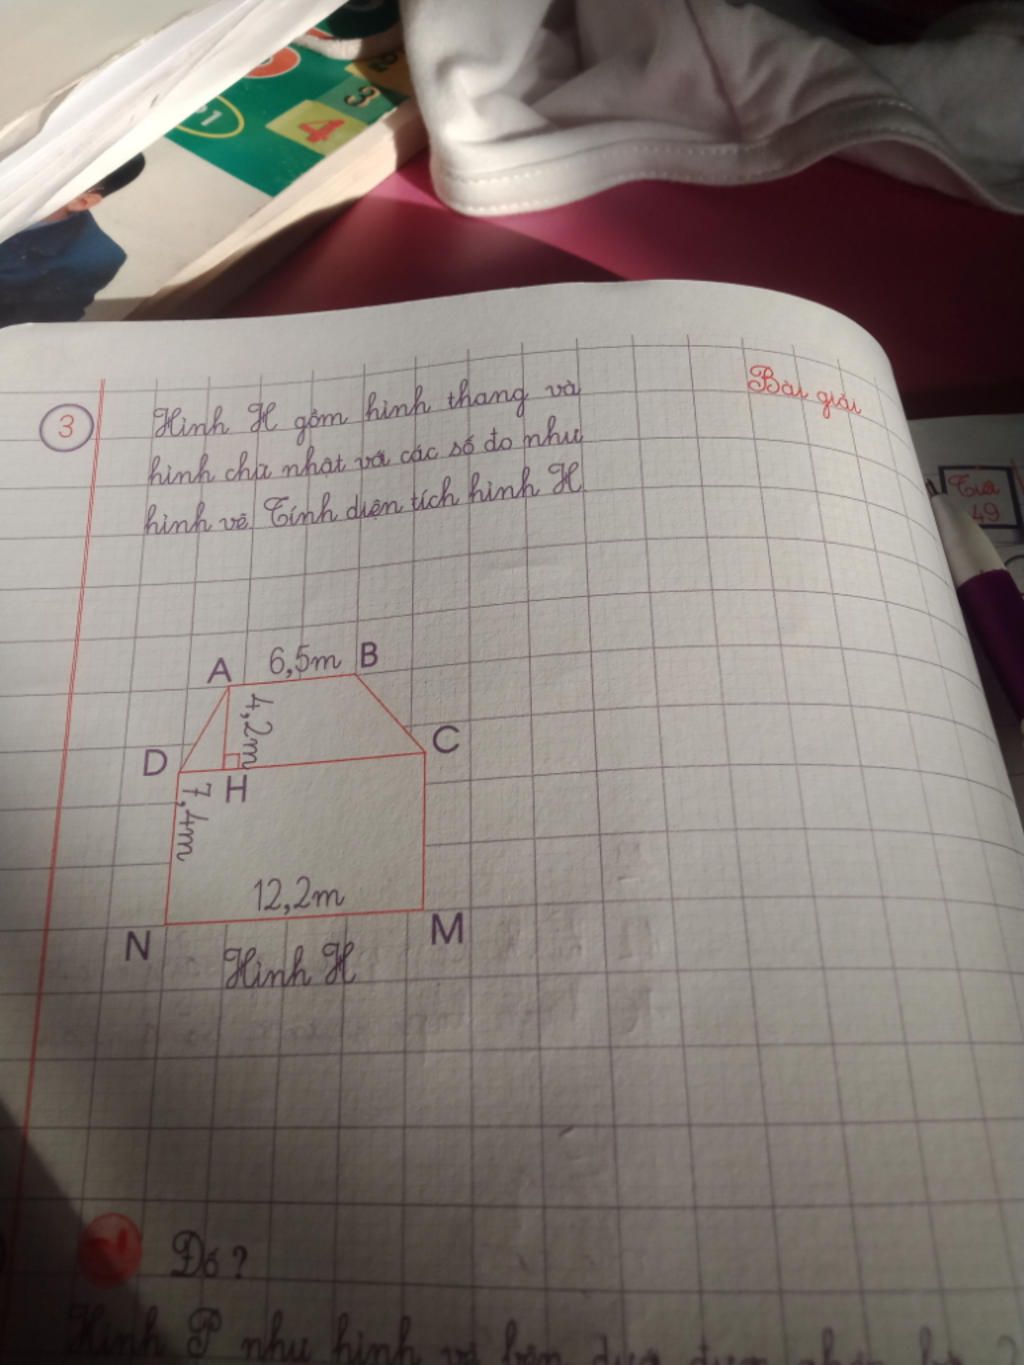 21
3
4
3
Bài giải
Hình H gồm hình thang và
hình chữ nhật và các số đo như
hình vẽ. Tính diện tích hình H
Tiết
49
A 6,5m B
4,2m
D H C
7,4m
12,2m
N M
Hình H
Đố?
Hình P như hình vẽ bên